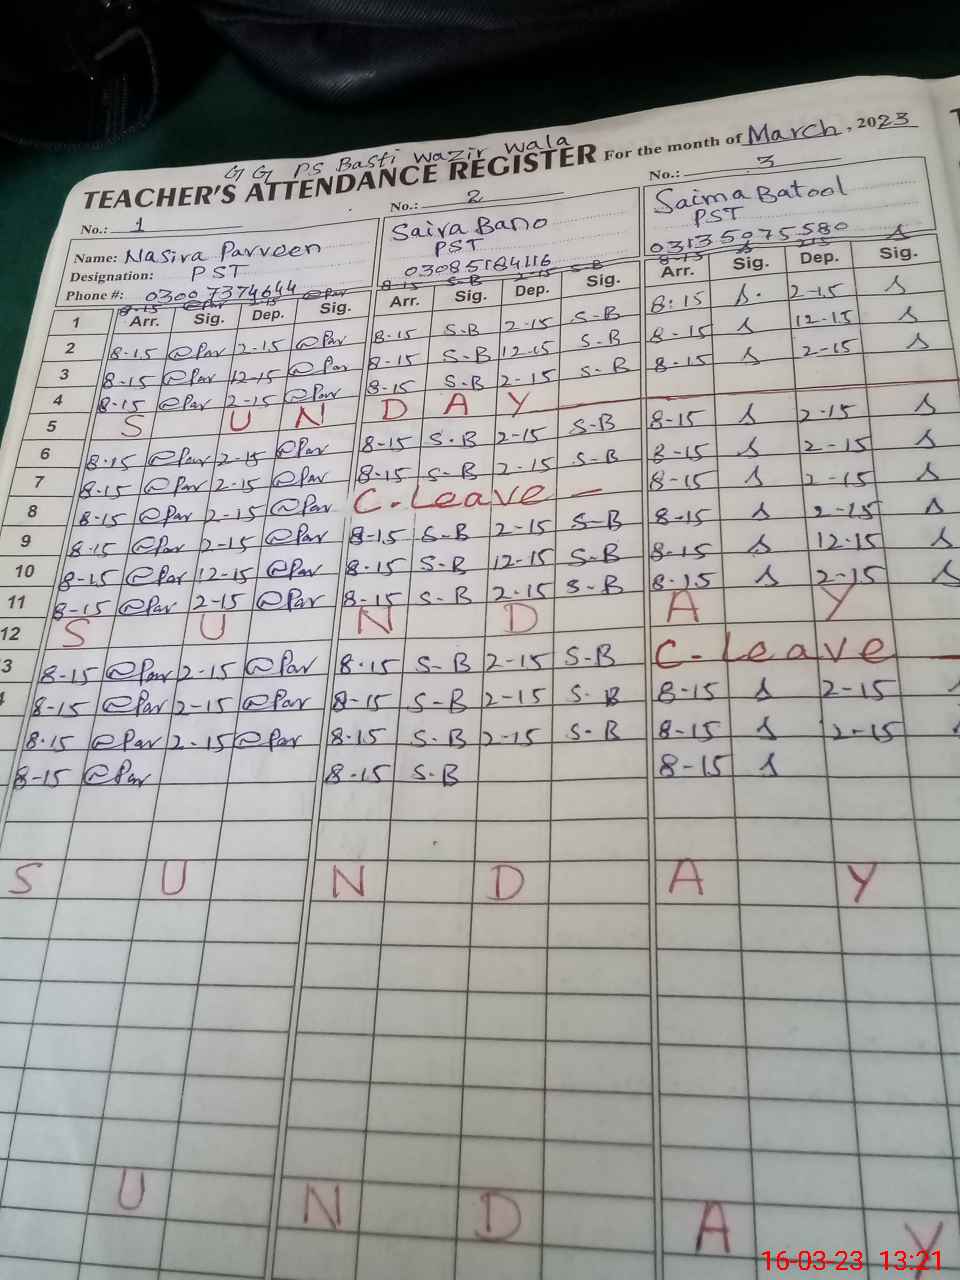 G G PS Basti Wazir Wala
TEACHER'S ATTENDANCE REGISTER For the month of March, 2023
No.: 1 No.: 2 No.: 3
Name: Nasira Parveen Saira Bano Saima Batool
Designation: PST PST PST
Phone #: 03007374644 03085184116 03135075580
8-15 @Par 2-15 @Par 8-15 S-B 2-15 S-B 8-15 s 2-15 s
Arr. Sig. Dep. Sig. Arr. Sig. Dep. Sig. Arr. Sig. Dep. Sig.
1
2 8-15 @Par 2-15 @Par 8-15 S-B 2-15 S-B 8-15 s. 2-15 s
3 8-15 @Par 12-15 @Par 8-15 S-B 12-15 S-B 8-15 s 12-15 s
4 8-15 @Par 2-15 @Par 8-15 S-B 2-15 S-B 8-15 s 2-15 s
5 S U N D A Y
6 8-15 @Par 2-15 @Par 8-15 S-B 2-15 S-B 8-15 s 2-15 s
7 8-15 @Par 2-15 @Par 8-15 S-B 2-15 S-B 8-15 s 2-15 s
8 8-15 @Par 2-15 @Par C-Leave - 8-15 s 2-15 s
9 8-15 @Par 2-15 @Par 8-15 S-B 2-15 S-B 8-15 s 2-15 s
10 8-15 @Par 12-15 @Par 8-15 S-B 12-15 S-B 8-15 s 12-15 s
11 8-15 @Par 2-15 @Par 8-15 S-B 2-15 S-B 8-15 s 2-15 s
12 S U N D A Y
3 8-15 @Par 2-15 @Par 8-15 S-B 2-15 S-B C-Leave -
8-15 @Par 2-15 @Par 8-15 S-B 2-15 S-B 8-15 s 2-15
8-15 @Par 2-15 @Par 8-15 S-B 2-15 S-B 8-15 s 2-15
8-15 @Par 8-15 S-B 8-15 s
S U N D A Y
U N D A Y
16-03-23 13:21